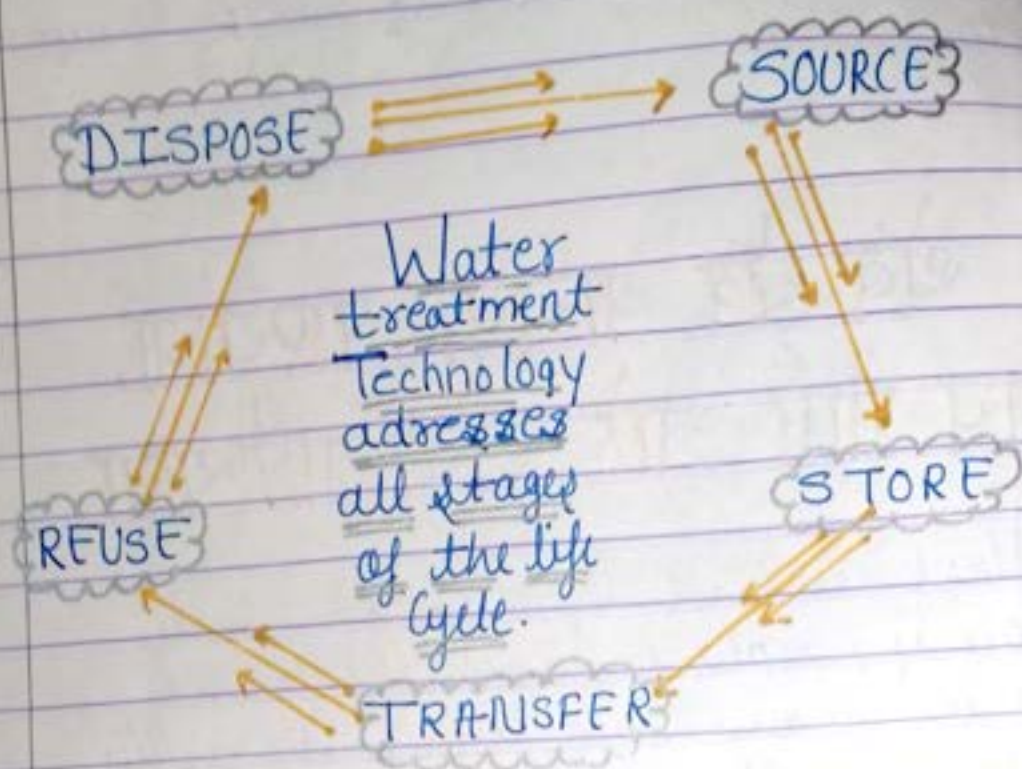 DISPOSE
SOURCE
Water
treatment
Technology
adresses
all stages
of the life
Cycle.
STORE
REUSE
TRANSFER